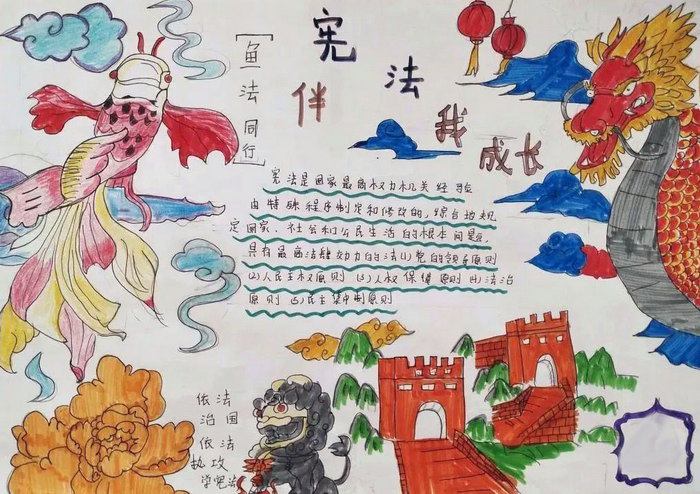 宪法
伴我成长
[鱼法同行]
宪法是国家最高权力机关经
由特殊程序制定和修改的,综合地规
定国家、社会和公民生活的根本问题,
具有最高法律效力的法(1)党的领导原则
(2)人民主权原则 (3)人权保障原则 (4)法治
原则 (5)民主集中制原则
依法
治国
依法
执政
学宪法